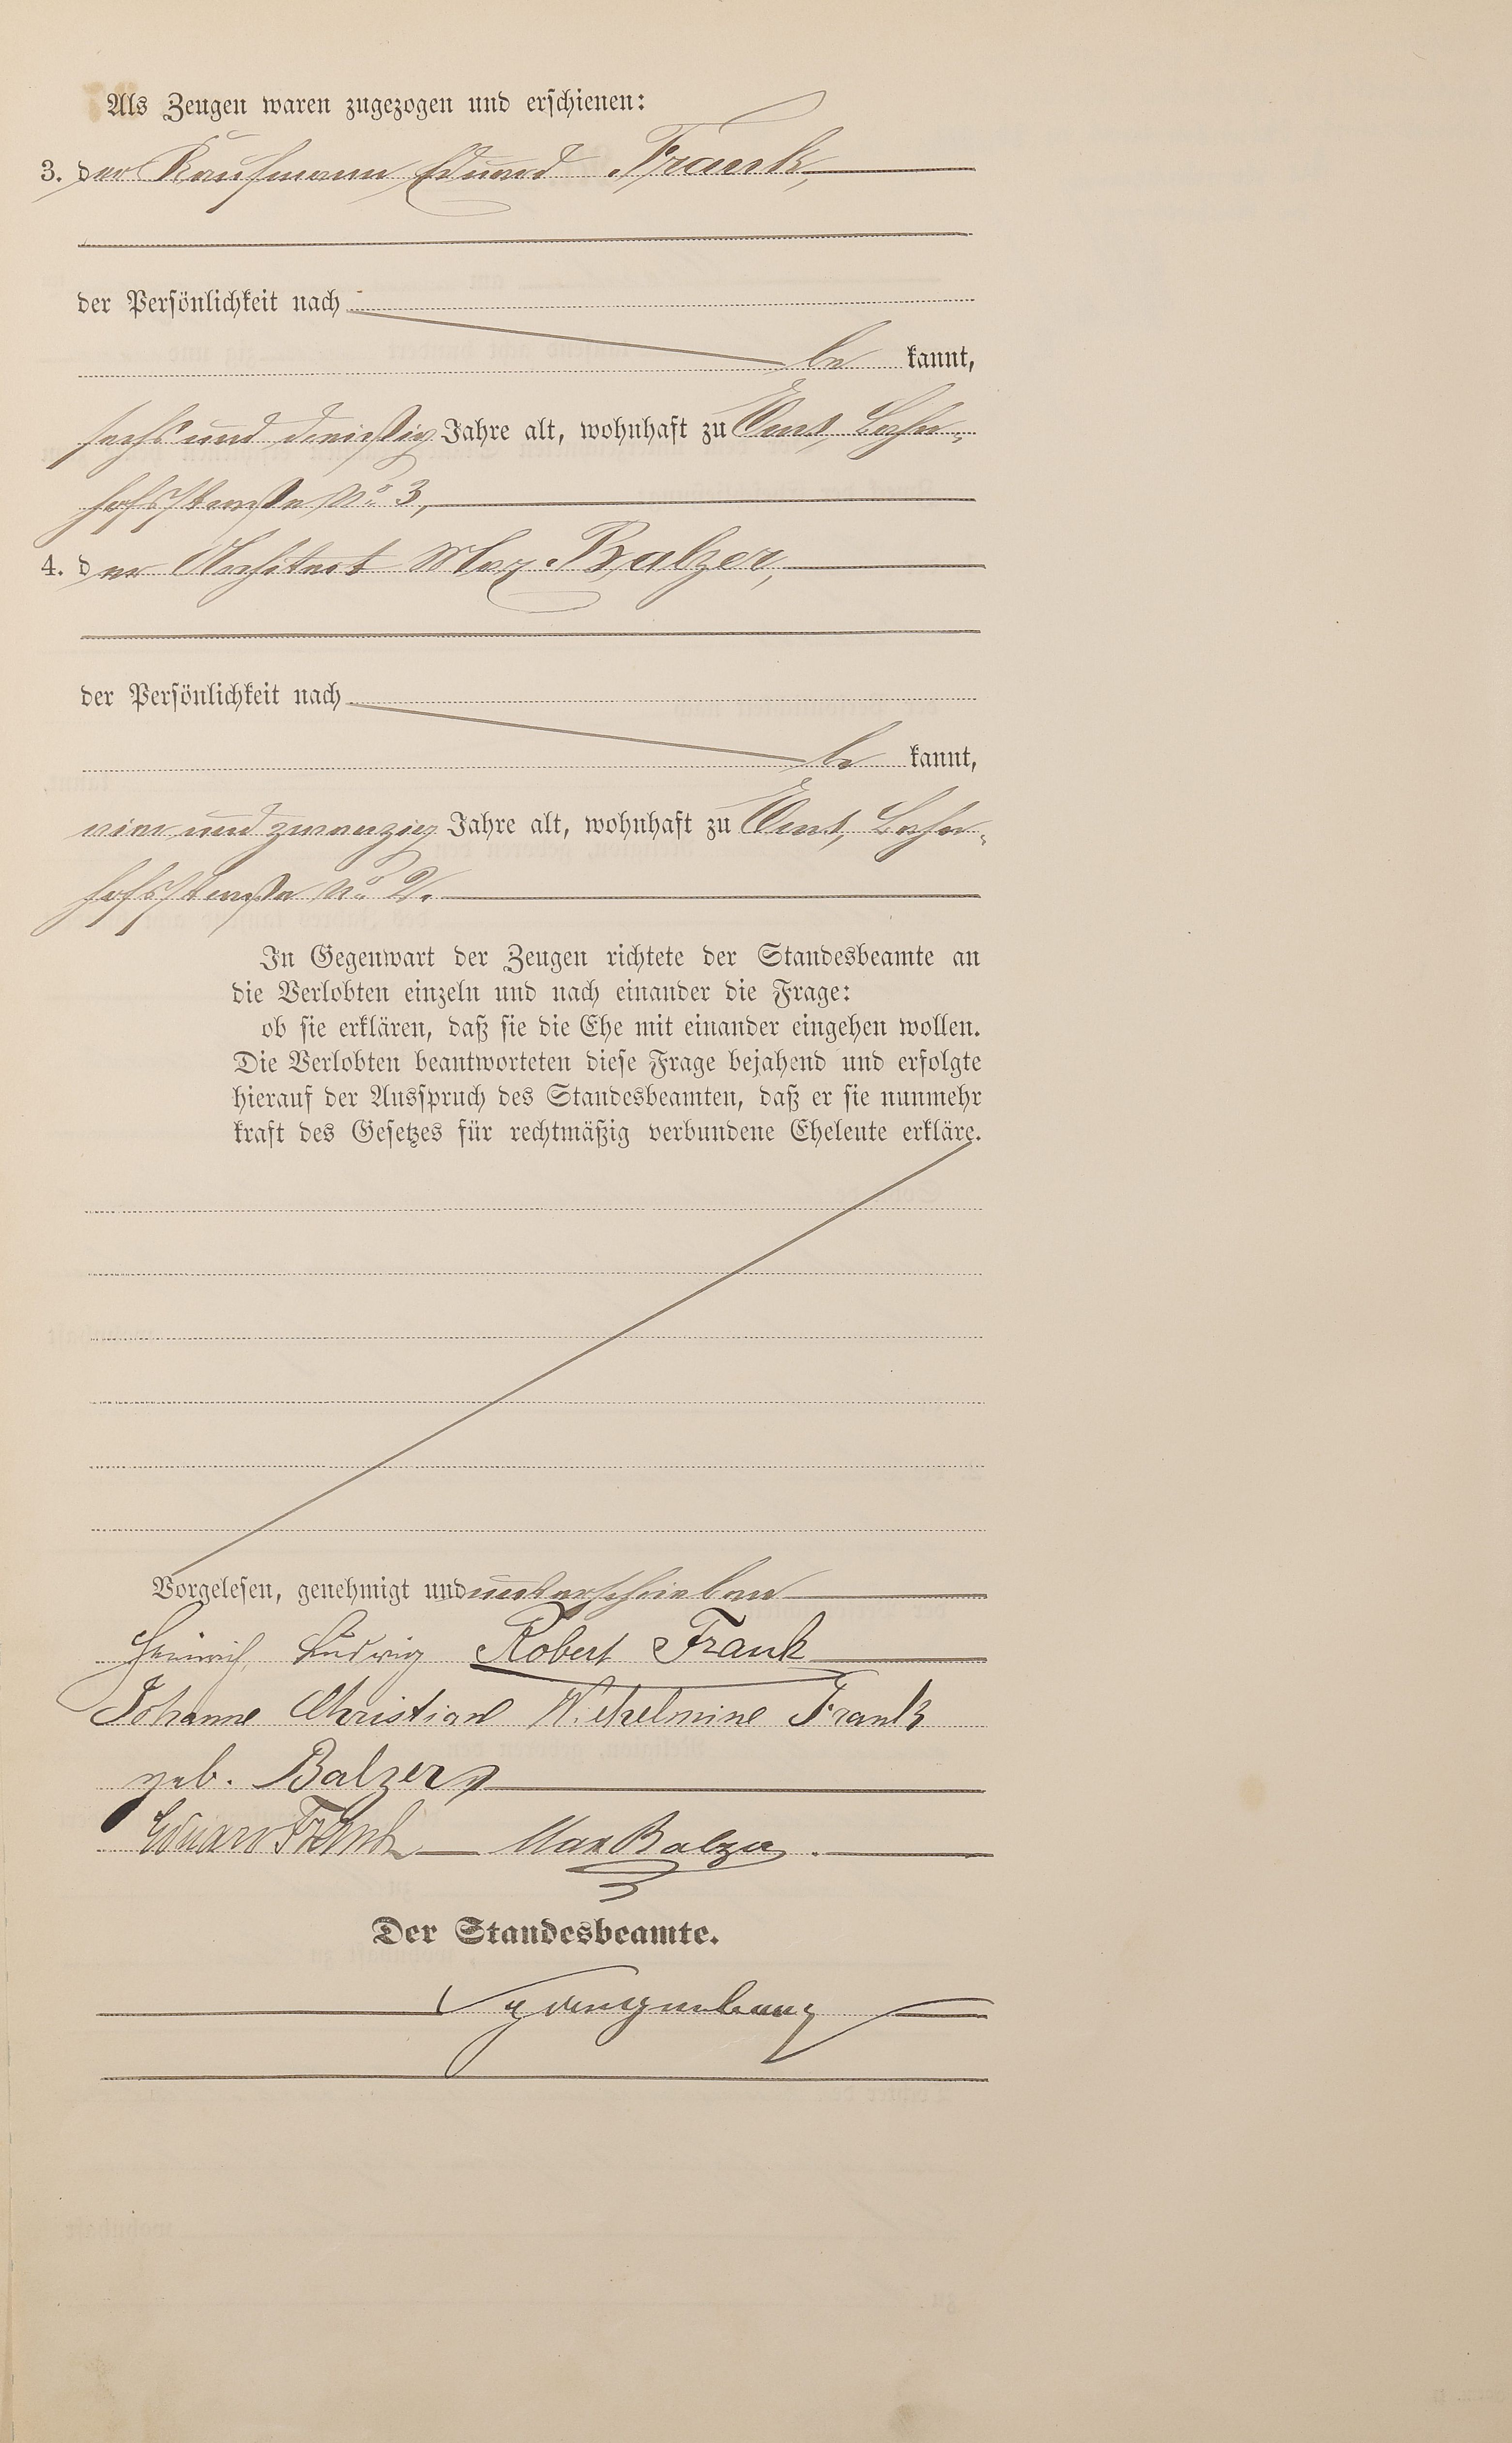 Als Zeugen waren zugezogen und erschienen:
3. der Kaufmann Eduard Frank,
der Persönlichkeit nach
be kannt,
sechs und dreißig Jahre alt, wohnhaft zu Bahn-
hofsstraße No. 3,
4. der Architect Max Balzer,
der Persönlichkeit nach
be kannt,
vier und zwanzig Jahre alt, wohnhaft zu Bahn-
hofsstraße No. 2.
In Gegenwart der Zeugen richtete der Standesbeamte an
die Verlobten einzeln und nach einander die Frage:
ob sie erklären, daß sie die Ehe mit einander eingehen wollen.
Die Verlobten beantworteten diese Frage bejahend und erfolgte
hierauf der Ausspruch des Standesbeamten, daß er sie nunmehr
kraft des Gesetzes für rechtmäßig verbundene Eheleute erkläre.
Vorgelesen, genehmigt und unterschrieben
Heinrich Ludwig Robert Frank
Johanne Christiane Wilhelmine Frank
geb. Balzer
Eduard Frank Max Balzer.
Der Standesbeamte.